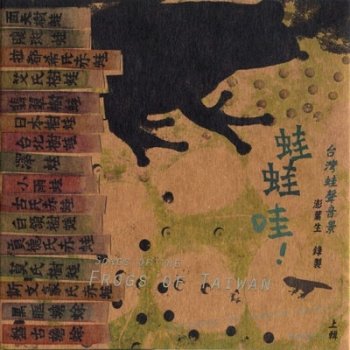 面天樹蛙
腹斑蛙
拉都希氏赤蛙
艾氏樹蛙
翡翠樹蛙
日本樹蛙
台北樹蛙
澤蛙
小雨蛙
古氏赤蛙
白頷樹蛙
貢德氏赤蛙
莫氏樹蛙
斯文豪氏赤蛙
黑眶蟾蜍
盤古蟾蜍
台灣蛙聲音景
澎葉生 錄製
上輯
蛙蛙哇!
SONGS OF THE
FROGS OF TAIWAN